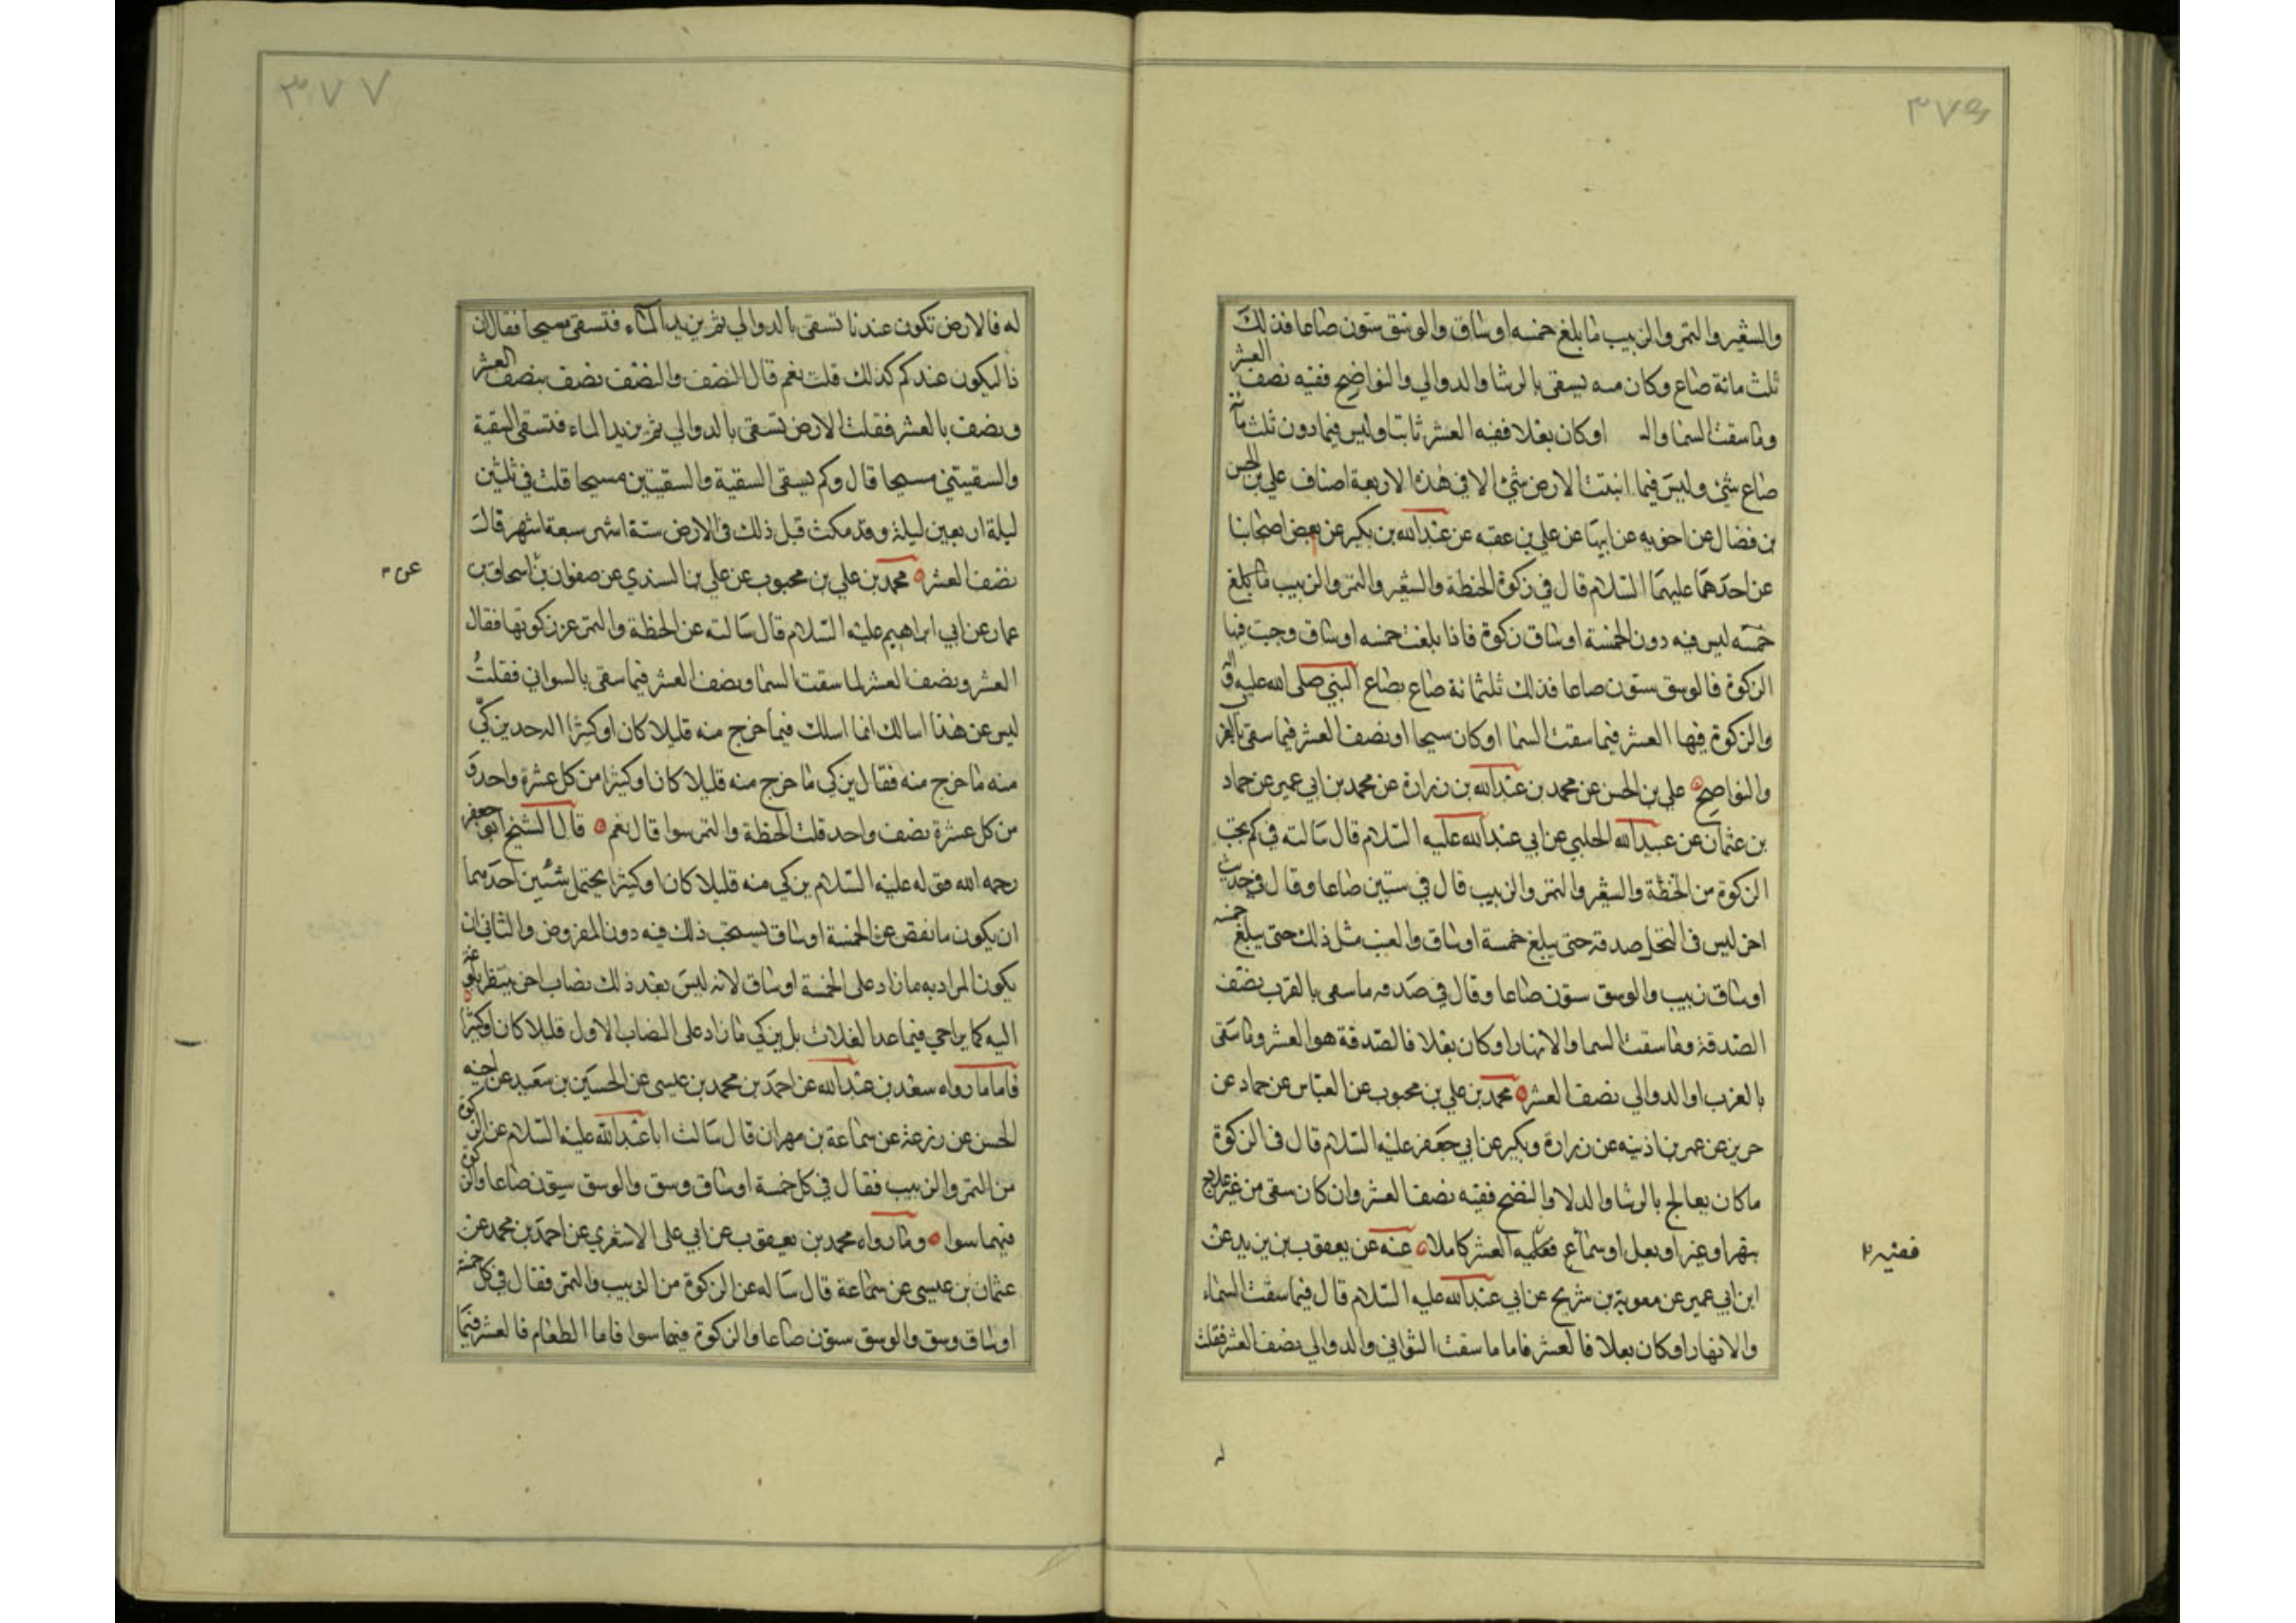 ٣٧٦
والشعير والتمر والزبيب ما بلغ خمسة اوساق والوسق ستون صاعا فذلك
ثلث مائة صاع وكان منه يسقى بالرشا والدوالي والنواضح ففيه نصف العشر
وما سقت السما وا او كان بعلا ففيه العشر ثابتا وليس فيما دون ثلث مائة
صاع شئ وليس فيما انبتت الارض شئ الا في هذه الاربعة اصناف علي بن الحسن
بن فضال عن اخويه عن ابيهما عن علي بن عقبه عن عبدالله بن بكير عن بعض اصحابنا
عن احدهما عليهما السلام قال في زكوة الحنطة والشعير والتمر والزبيب ما بلغ
خمسه ليس فيه دون الخمسة اوساق زكوة فاذا بلغت خمسه اوساق وجبت فيها
الزكوة فالوسق ستون صاعا فذلك ثلثمائة صاع بصاع النبي صلى الله عليه وآله
والزكوة فيها العشر فيما سقت السما او كان سيحا او نصف العشر فيما سقى بالغرب
والنواضح علي بن الحسن عن محمد بن عبدالله بن زرارة عن محمد بن ابي عمير عن حماد
بن عثمان عن عبيدالله الحلبي عن ابي عبدالله عليه السلام قال سالته في كم يجب
الزكوة من الحنطة والشعير والتمر والزبيب قال في ستين صاعا وقال في حديث
اخر ليس في النخل صدقة حتى يبلغ خمسة اوساق والعنب مثل ذلك حتى يبلغ خمسه
اوساق زبيب والوسق ستون صاعا وقال في صدقه ما سقى بالغرب نصف
الصدقة وما سقت السما والانهار او كان بعلا فالصدقة هو العشر وما سقى
بالغرب او الدوالي نصف العشر محمد بن علي بن محبوب عن العباس عن حماد عن
حريز عن عمر بن اذينه عن زرارة وبكير عن ابي جعفر عليه السلام قال في الزكوة
ما كان يعالج بالرشا والدلا والنضح ففيه نصف العشر وان كان سقى من غير علاج
بنهر او عين او بعل او سماء فعليه العشر كاملا عنه عن يعقوب بن يزيد عن
ففيه
ابن ابي عمير عن معوية بن شريح عن ابي عبدالله عليه السلام قال فيما سقت السماء
والانهار او كان بعلا فالعشر فاما ما سقت السواني والدوالي نصف العشر فقلت
٣٧٧
له فالارض تكون عندنا تسقى بالدوالي ثم يزيد الماء فتسقى سيحا فقال ان
ذا ليكون عندكم كذلك قلت نعم قال النصف والنصف نصف بنصف العشر
ونصف بالعشر فقلت الارض تسقى بالدوالي ثم يزيد الماء فتسقى السقية
والسقيتين سيحا قال وكم تسقى السقية والسقيتين سيحا قلت في ثلثين
ليلة اربعين ليلة وقد مكث قبل ذلك في الارض ستة اشهر سبعة اشهر قال
نصف العشر محمد بن علي بن محبوب عن علي بن السندي عن صفوان بن اسحاق بن
عن
عمار عن ابي ابراهيم عليه السلام قال سالته عن الحنطة والتمر عن زكوتها فقال
العشر ونصف العشر لما سقت السما ونصف العشر فيما سقى بالسواني فقلت
ليس عن هذا اسالك انما اسلك فيما خرج منه قليلا كان او كثيرا اله حد يزكي
منه ما خرج منه فقال يزكي ما خرج منه قليلا كان او كثيرا من كل عشرة واحد و
من كل عشرة نصف واحد قلت الحنطة والتمر سوا قال نعم قال الشيخ ابو جعفر
رحمه الله قوله عليه السلام يزكي منه قليلا كان او كثيرا يحتمل شيئين احدهما
ان يكون ما نقص عن الخمسة اوساق يستحب ذلك فيه دون المفروض والثاني ان
يكون المراد به ما زاد على الخمسة اوساق لانه ليس بعد ذلك نصاب اخر ينتظر بلوغه
اليه كما يراعي فيما عدا الغلات بل يزكي ما زاد على النصاب الاول قليلا كان او كثيرا
فاما ما رواه سعد بن عبدالله عن احمد بن محمد بن عيسى عن الحسين بن سعيد عن اخيه
الحسن عن زرعة عن سماعة بن مهران قال سالت ابا عبدالله عليه السلام عن الزكوة
من التمر والزبيب فقال في كل خمسة اوساق وسق والوسق ستون صاعا والزكوة
فيهما سوا وما رواه محمد بن يعقوب عن ابي علي الاشعري عن احمد بن محمد عن
عثمان بن عيسى عن سماعة قال ساله عن الزكوة من الزبيب والتمر فقال في كل خمسة
اوساق وسق والوسق ستون صاعا والزكوة فيهما سوا فاما الطعام فالعشر فيما